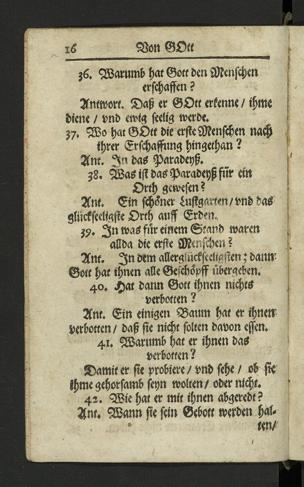 16 Von GOtt
36. Warumb hat Gott den Menschen
erschaffen?
Antwort. Daß er GOtt erkenne / ihme
diene / vnd ewig seelig werde.
37. Wo hat GOtt die erste Menschen nach
ihrer Erschaffung hingethan?
Ant. In das Paradeyß.
38. Was ist das Paradeyß für ein
Orth gewesen?
Ant. Ein schöner Lustgarten / vnd das
glückseeligste Orth auff Erden.
39. In was für einem Stand waren
allda die erste Menschen?
Ant. In dem allerglückseeligsten; dann
Gott hat ihnen alle Geschöpff übergeben.
40. Hat dann Gott ihnen nichts
verbotten?
Ant. Ein einigen Baum hat er ihnen
verbotten / daß sie nicht solten davon essen.
41. Warumb hat er ihnen das
verbotten?
Damit er sie probiere / vnd sehe / ob sie
ihme gehorsamb seyn wolten / oder nicht.
42. Wie hat er mit ihnen abgeredt?
Ant. Wann sie sein Gebott werden hal-
ten /